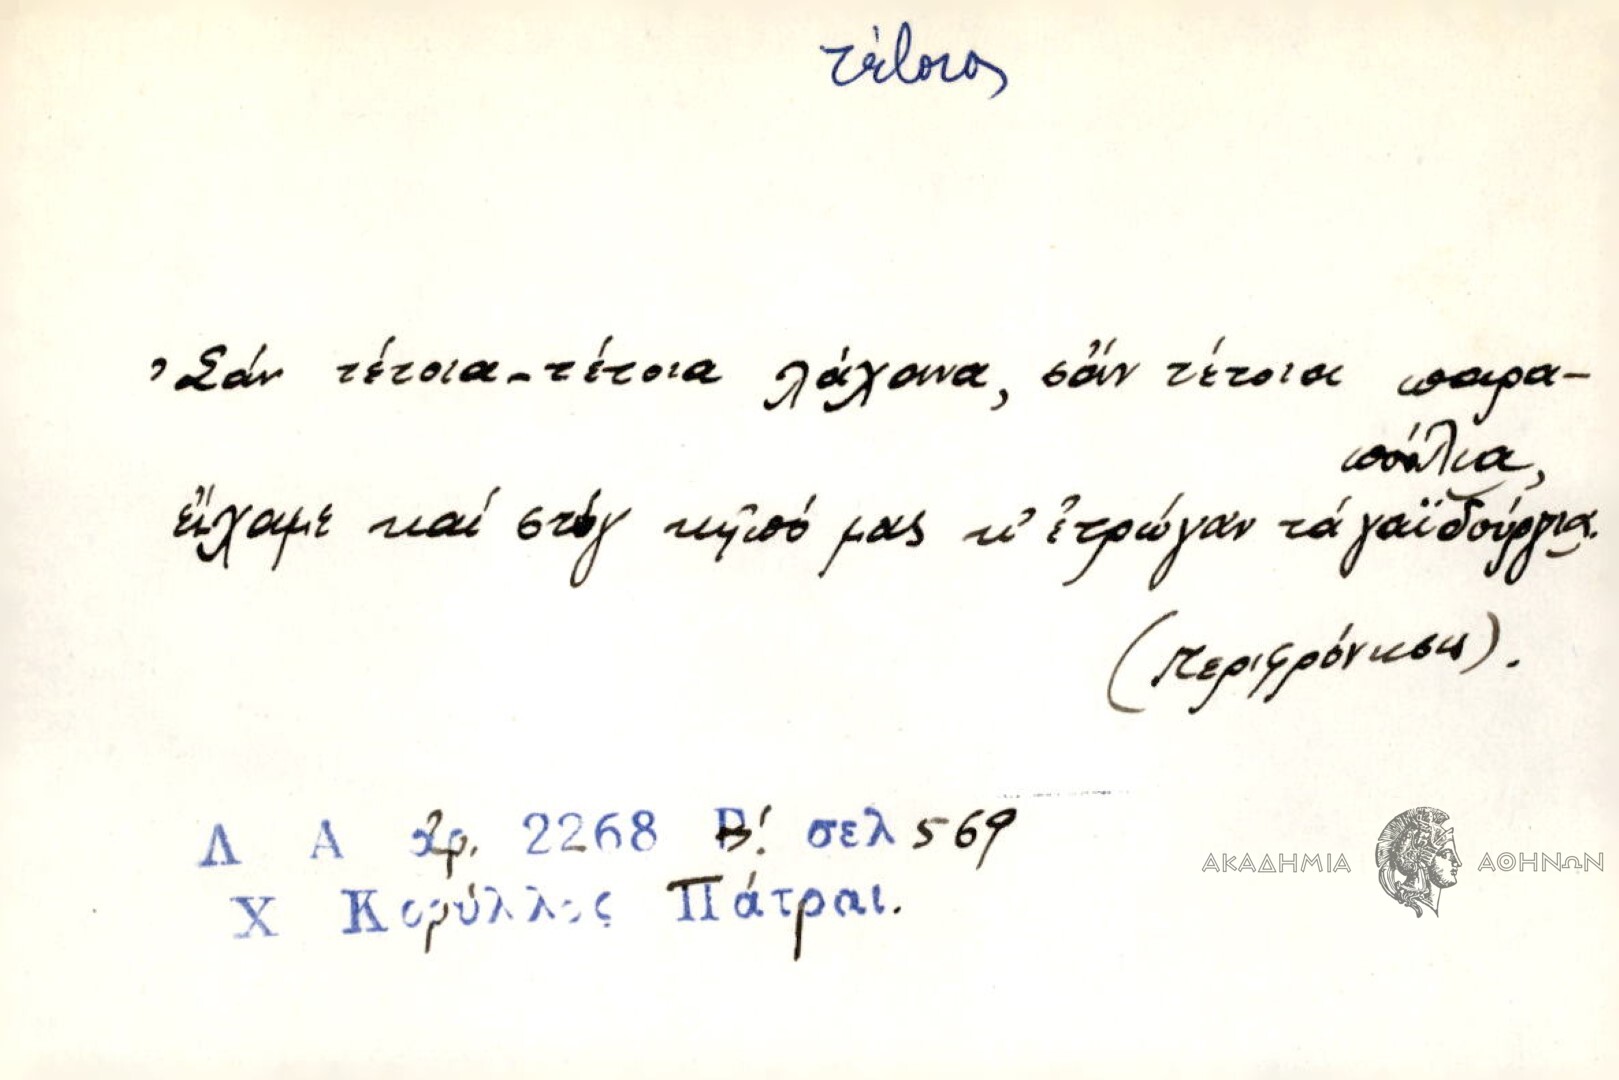 τέτοιος
Σάν τέτοια-τέτοια λάχανα, σάν τέτοια παρα-
πούλια,
εἴχαμε καί στόγ κῆπό μας κι ἐτρώγαν τά γαϊδούργια.
(περιφρόνησις).
Λ Α ἀρ. 2268 Β! σελ 569
Χ Κορύλλος Πάτραι.
ΑΚΑΔΗΜΙΑ ΑΘΗΝΩΝ